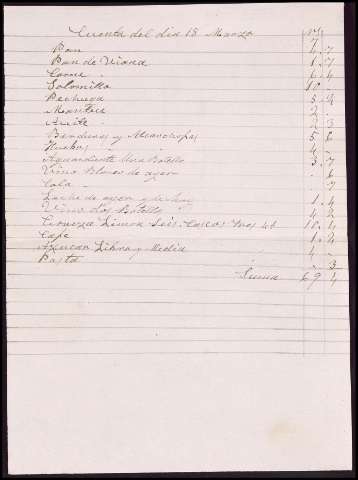 Cuenta del dia 15 Marzo
Pan 1 7
Pan de Viena 1 7
Carne 6 4
Solomillo 10
Pechuga 5 4
Manteca 2
Aceite 2 3
Verduras y 5 6
Huevos 4
Aguardiente Una Botella 3 7
Vino Blanco de ayer 6
Cola 7
Leche de ayer y de hoy 1 4
Vino Dos Botellas 4 2
Cerveza Seis Cascos 10 4
Cafe 1 4
Azucar Libra y Media 4
Pasta 3
Suma 69 4